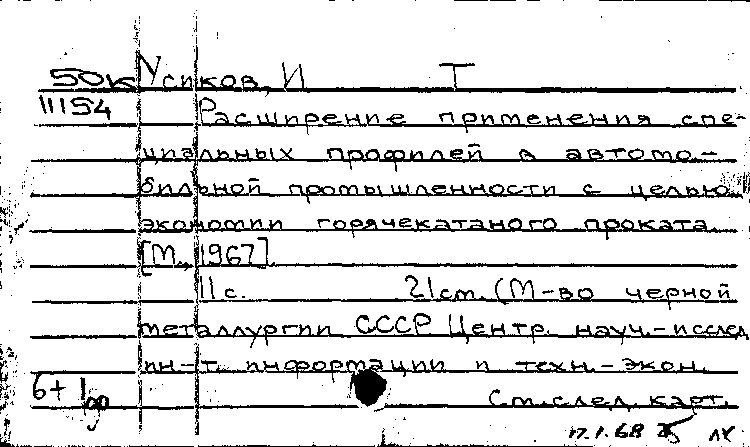 50к Усиков, И Т
11154 Расширение применения спе-
циальных профилей в автомо-
бильной промышленности с целью
экономии горячекатаного проката.
[М., 1967].
11 с. 21 см. (М-во черной
металлургии СССР Центр. науч.-исслед
ин-т. информации и техн.-экон.
6+1
См. след. карт.
17.1.68